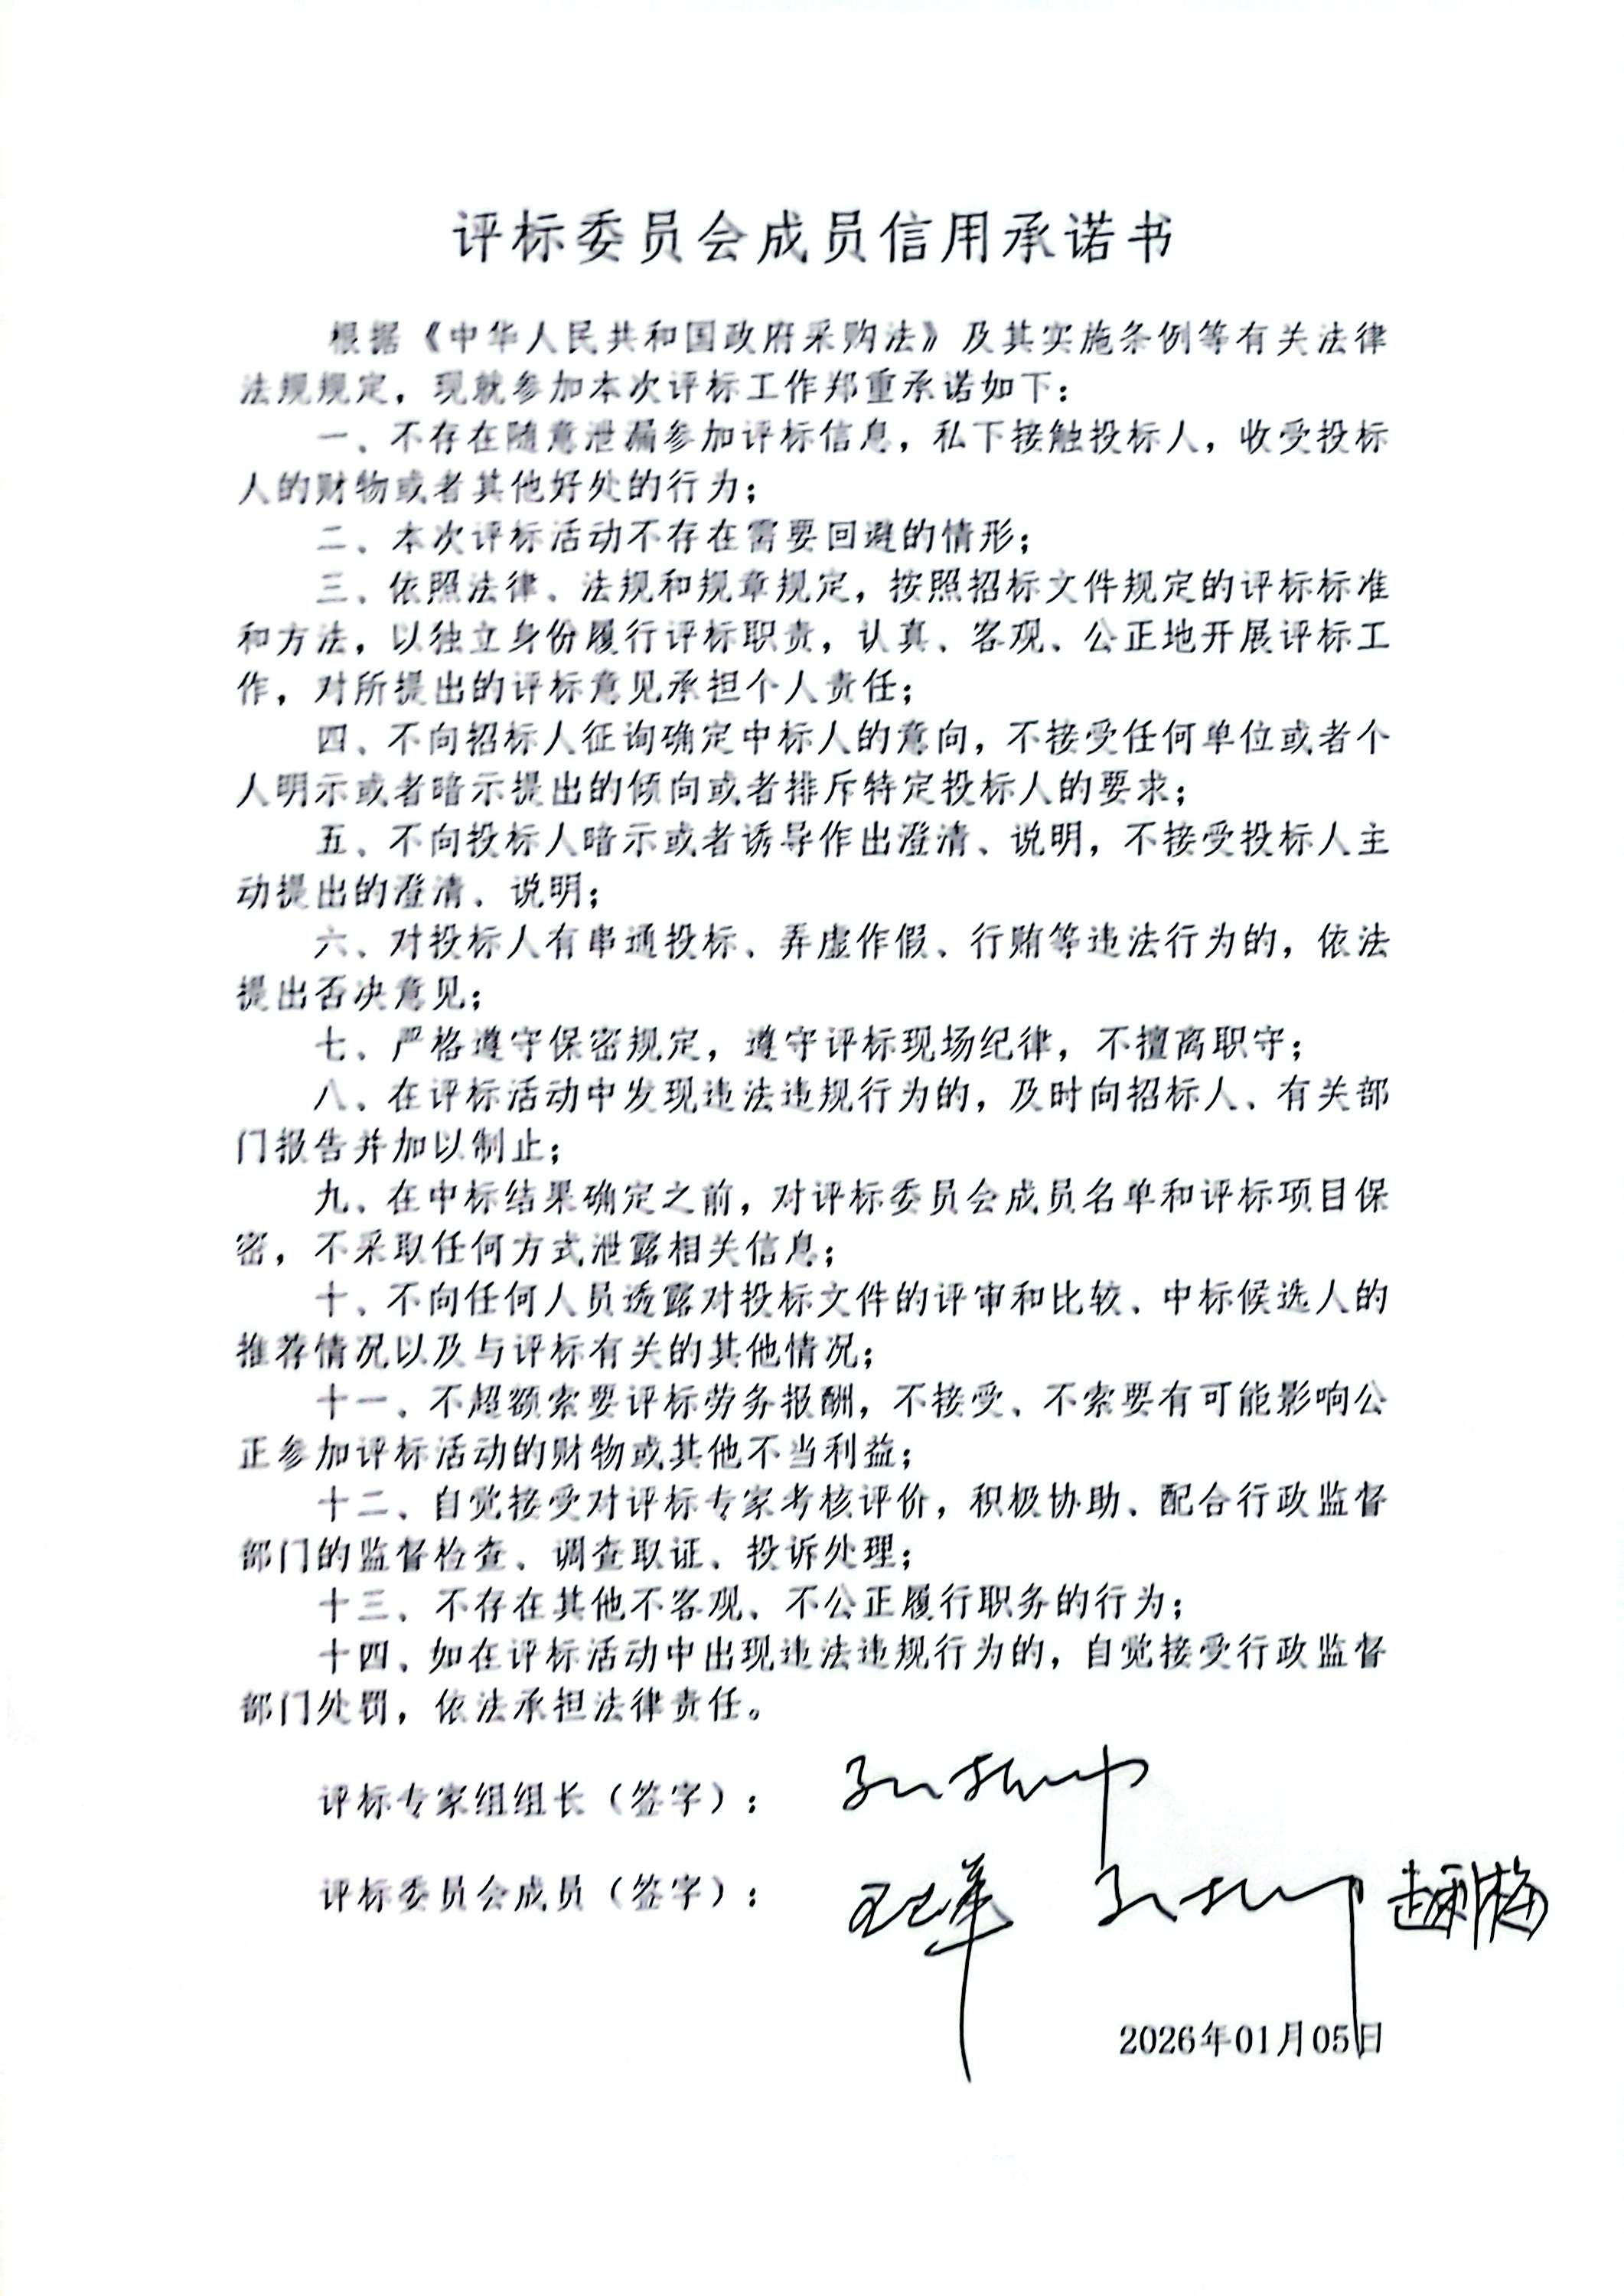 评标委员会成员信用承诺书
根据《中华人民共和国政府采购法》及其实施条例等有关法律
法规规定，现就参加本次评标工作郑重承诺如下：
一、不存在随意泄漏参加评标信息，私下接触投标人，收受投标
人的财物或者其他好处的行为；
二、本次评标活动不存在需要回避的情形；
三、依照法律、法规和规章规定，按照招标文件规定的评标标准
和方法，以独立身份履行评标职责，认真、客观、公正地开展评标工
作，对所提出的评标意见承担个人责任；
四、不向招标人征询确定中标人的意向，不接受任何单位或者个
人明示或者暗示提出的倾向或者排斥特定投标人的要求；
五、不向投标人暗示或者诱导作出澄清、说明，不接受投标人主
动提出的澄清、说明；
六、对投标人有串通投标、弄虚作假、行贿等违法行为的，依法
提出否决意见；
七、严格遵守保密规定，遵守评标现场纪律，不擅离职守；
八、在评标活动中发现违法违规行为的，及时向招标人、有关部
门报告并加以制止；
九、在中标结果确定之前，对评标委员会成员名单和评标项目保
密，不采取任何方式泄露相关信息；
十、不向任何人员透露对投标文件的评审和比较、中标候选人的
推荐情况以及与评标有关的其他情况；
十一、不超额索要评标劳务报酬，不接受、不索要有可能影响公
正参加评标活动的财物或其他不当利益；
十二、自觉接受对评标专家考核评价，积极协助、配合行政监督
部门的监督检查、调查取证、投诉处理；
十三、不存在其他不客观、不公正履行职务的行为；
十四、如在评标活动中出现违法违规行为的，自觉接受行政监督
部门处罚，依法承担法律责任。
评标专家组组长（签字）：
评标委员会成员（签字）：
2026年01月05日